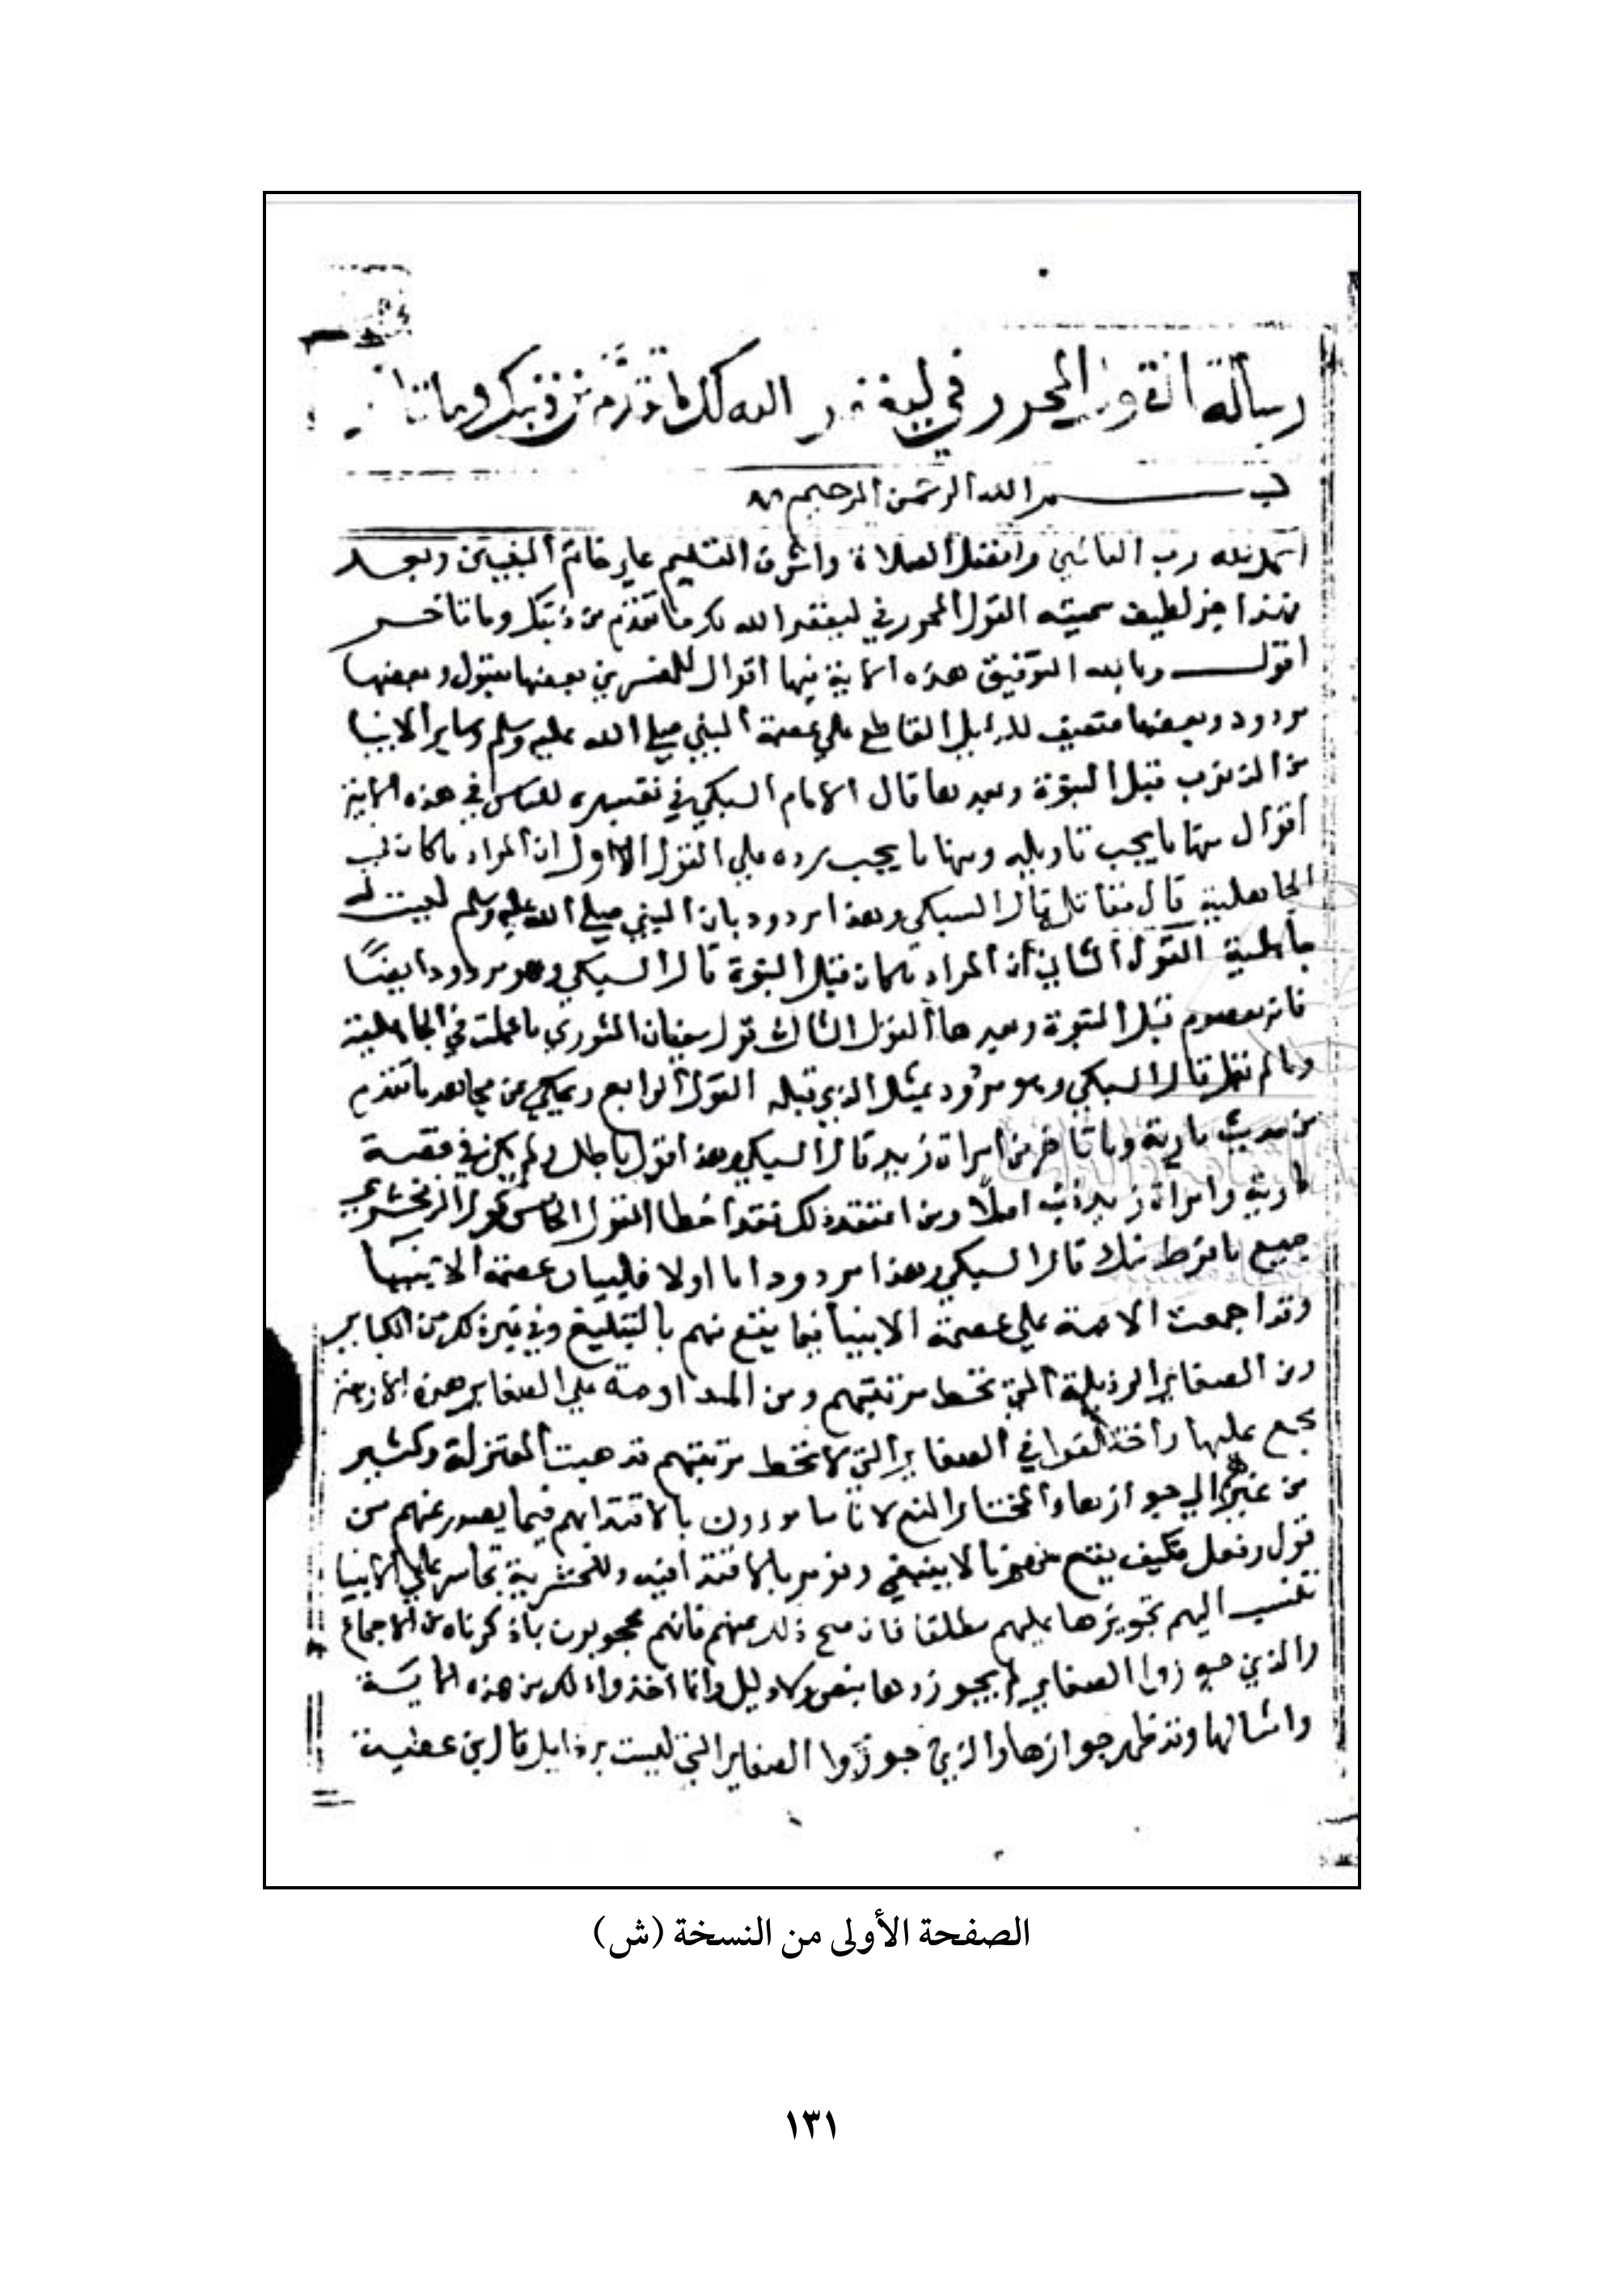 رسالة القول المحرر في ليغفر الله لك ما تقدم من ذنبك وما تأخر
بسم الله الرحمن الرحيم
الحمد لله رب العالمين وافضل الصلاة واشرف التسليم على خاتم النبيين وبعد
فهذا جزء لطيف سميته القول المحرر في ليغفر الله لك ما تقدم من ذنبك وما تاخر
اقول وبالله التوفيق هذه الاية فيها اقوال للمفسرين بعضها مقبول وبعضها
مردود وبعضها ضعيف للدليل القاطع علي عصمة النبي صلي الله عليه وسلم وساير الانبيا
من الذنوب قبل النبوة وبعدها قال الامام السبكي في تفسيره للناس في هذه الاية
اقوال منها ما يجب تاويله ومنها ما يجب رده علي القول الاول ان المراد ما كان في
الجاهلية قال مقاتل قال السبكي وهذا مردود بان النبي صلي الله عليه وسلم ليست له
جاهلية القول الثاني ان المراد ما كان قبل النبوة قال السبكي وهو مردود ايضًا
فانه معصوم قبل النبوة وبعدها القول الثالث قول سفيان الثوري ما عملت في الجاهلية
وما لم تعمل قال السبكي وهو مردود بمثل الذي قبله القول الرابع ويحكي عن مجاهد ما تقدم
من حديث مارية وما تاخر من امراة زيد قال السبكي وهذا قول باطل ولم يكن في قصة
مارية وامراة زيد ذنب اصلًا ومن اعتقد ذلك فقد اخطا القول الخامس قول الزمخشري
جميع ما فرط منك قال السبكي وهذا مردود اما اولا فلبيان عصمة الانبيا
وقد اجمعت الامة علي عصمة الانبيا فيما يتعلق منهم بالتبليغ وفي غير ذلك من الكباير
ومن الصغاير الرذيلة التي تحط مرتبتهم ومن المداومة علي الصغاير هذه الاربعة
مجمع عليها واختلفوا في الصغاير التي لا تحط مرتبتهم فذهبت المعتزلة وكثير
من غيرهم الي جوازها والمختار المنع لانا مامورون بالاقتدا بهم فيما يصدر عنهم من
قول وفعل فكيف يقع منهم ما لا ينبغي ونومر بالاقتدا فيه وللحشوية تجاسر علي الانبيا
تنسب اليهم تجويزها عليهم مطلقا فان صح ذلك عنهم فانهم محجوبون بما ذكرناه من الاجماع
والذين جوزوا الصغاير لم يجوزوها بنص ولا دليل وانما اخذوا ذلك من هذه الاية
وامثالها وقد ظهر جوازها والذين جوزوا الصغاير التي ليست برذايل قال ابن عطية
الصفحة الأولى من النسخة (ش)
١٣١